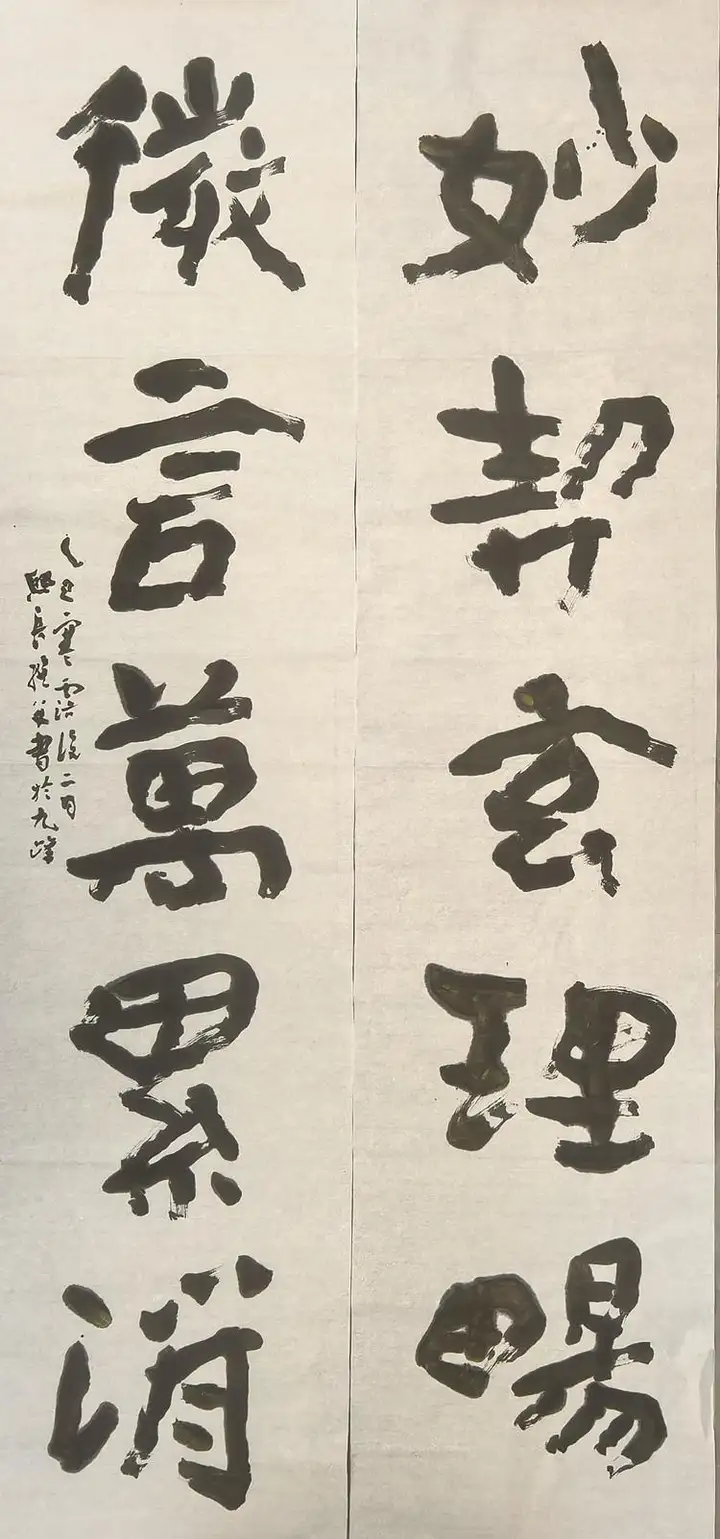 妙契玄理暢
微言萬累消
乙丑寒露後二日
熙長張英書於九峰